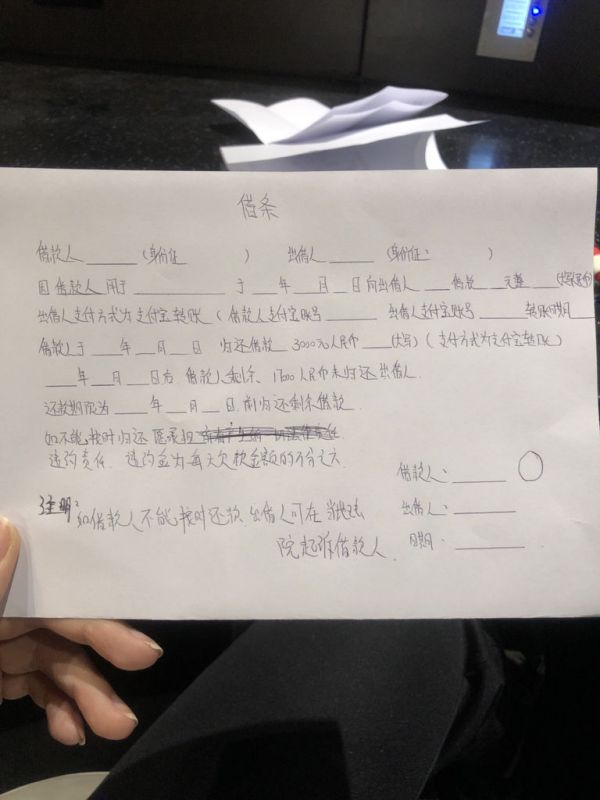 借条
借款人____(身份证 ) 出借人____(身份证: )
因借款人用于________于__年__月__日向出借人____借款__元整__(大写
出借人支付方式为支付宝转账(借款人支付宝账号____出借人支付宝账号____转账日期____
借款人于____年__月__日 归还借款 3000元人民币___(大写)(支付方式为支付宝转账)
____年__月__日右 借款人剩余、1700人民币未归还出借人.
还款期限为____年__月__日.前归还剩余借款.
如不能按时归还 愿承担
违约责任. 违约金为每天欠款金额的万分之六.
借款人:____
注明:如借款人不能按时还款.出借人可在当地法
出借人:____
院起诉借款人.
日期:____